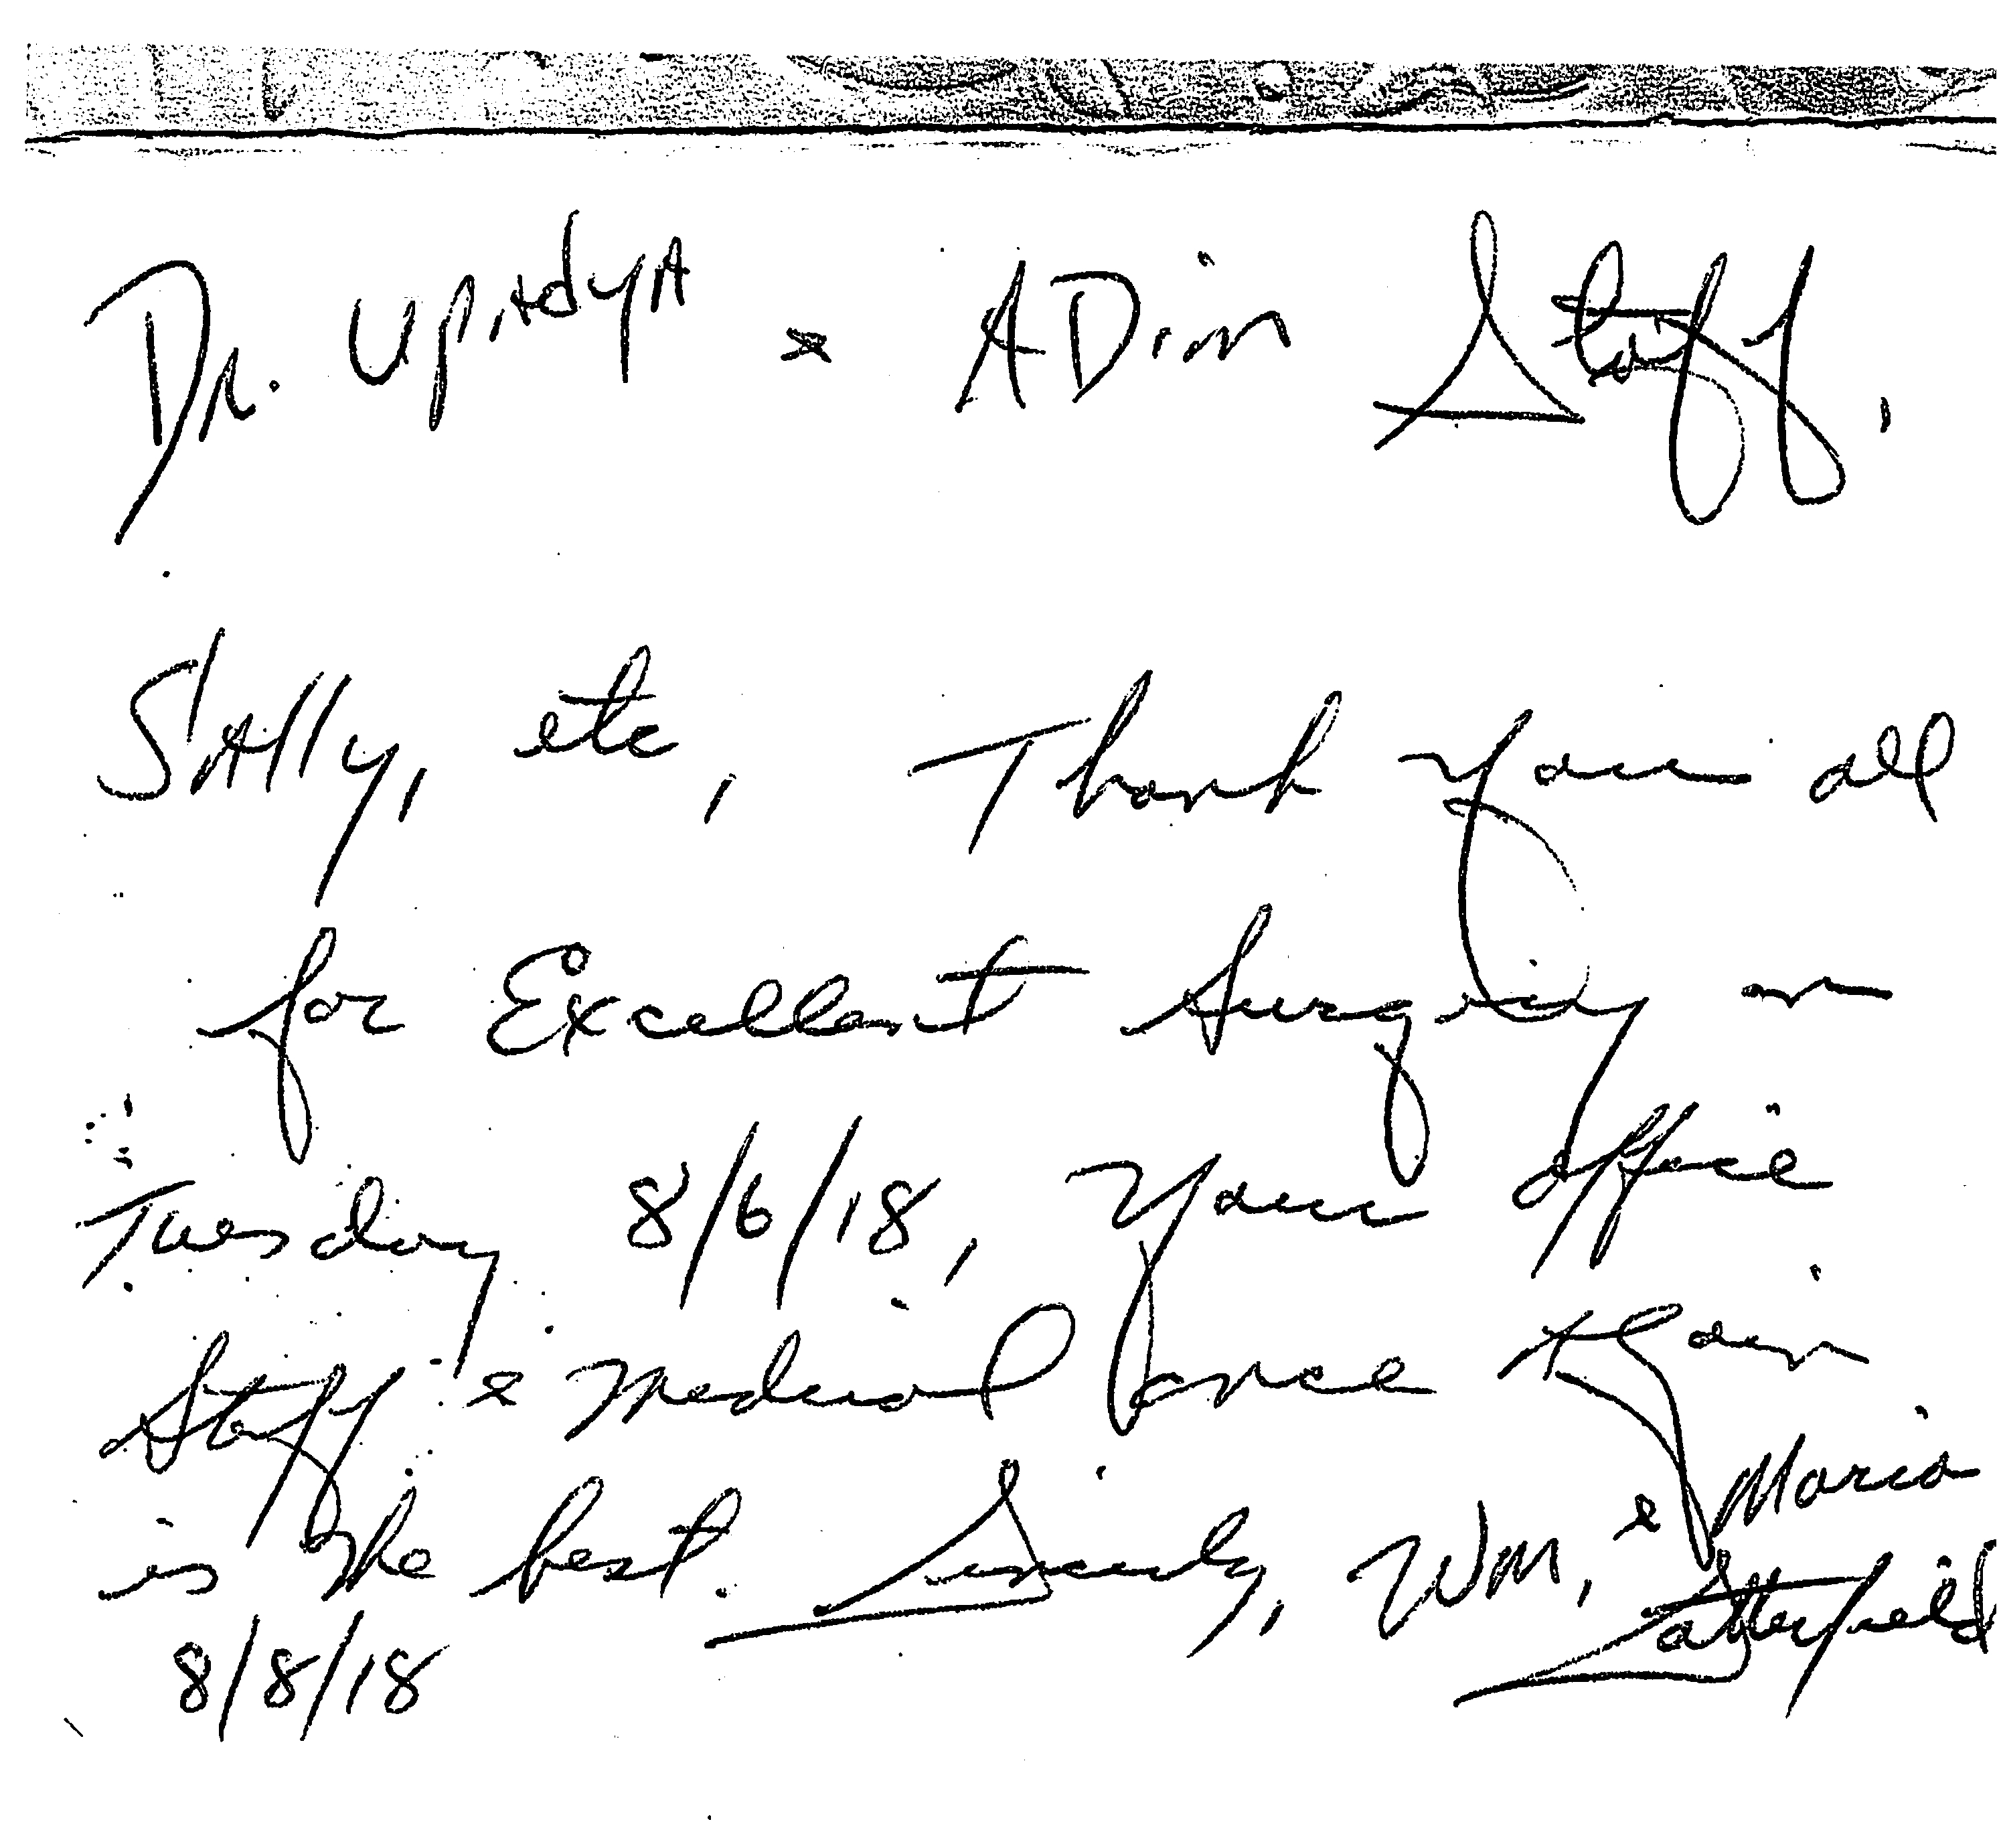 Dr. UpAdyA & ADim Staff,
SAlly, etc, Thank you all
for Excellent Surgery on
Tuesday 8/6/18, Your office
Staff & medical once Again
is the best. Sincerely, Wm, & Maria
8/8/18 Satterfield